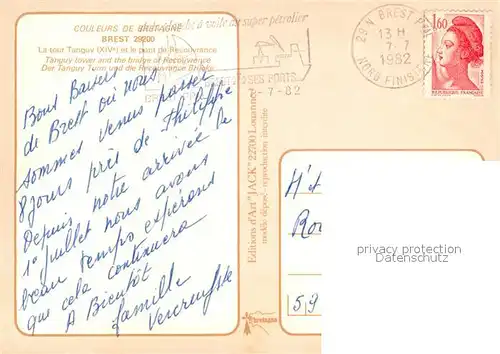 COULEURS DE BRETAGNE
BREST 29200
La tour Tanguy (XIVe) et le pont de Recouvrance
Tanguy tower and the bridge of Recouvrance
Der Tanguy Turm und die Recouvrance Brücke
Bons Baisers
de Brest où nous
sommes venus passer
8 jours près de Philippe
Depuis notre arrivée le
1er juillet nous avons
beau temps espérons
que cela continuera
A Bientôt
famille
de la cloche à voile au super pétrolier
SES PORTS
-7-82
29 N BREST
13 H
7 7
1982
NORD FINIS
1,60
Editions d'Art "JACK" 22700 Louannec
modèle déposé - reproduction interdite
M et
59
Bretagne
privacy protection